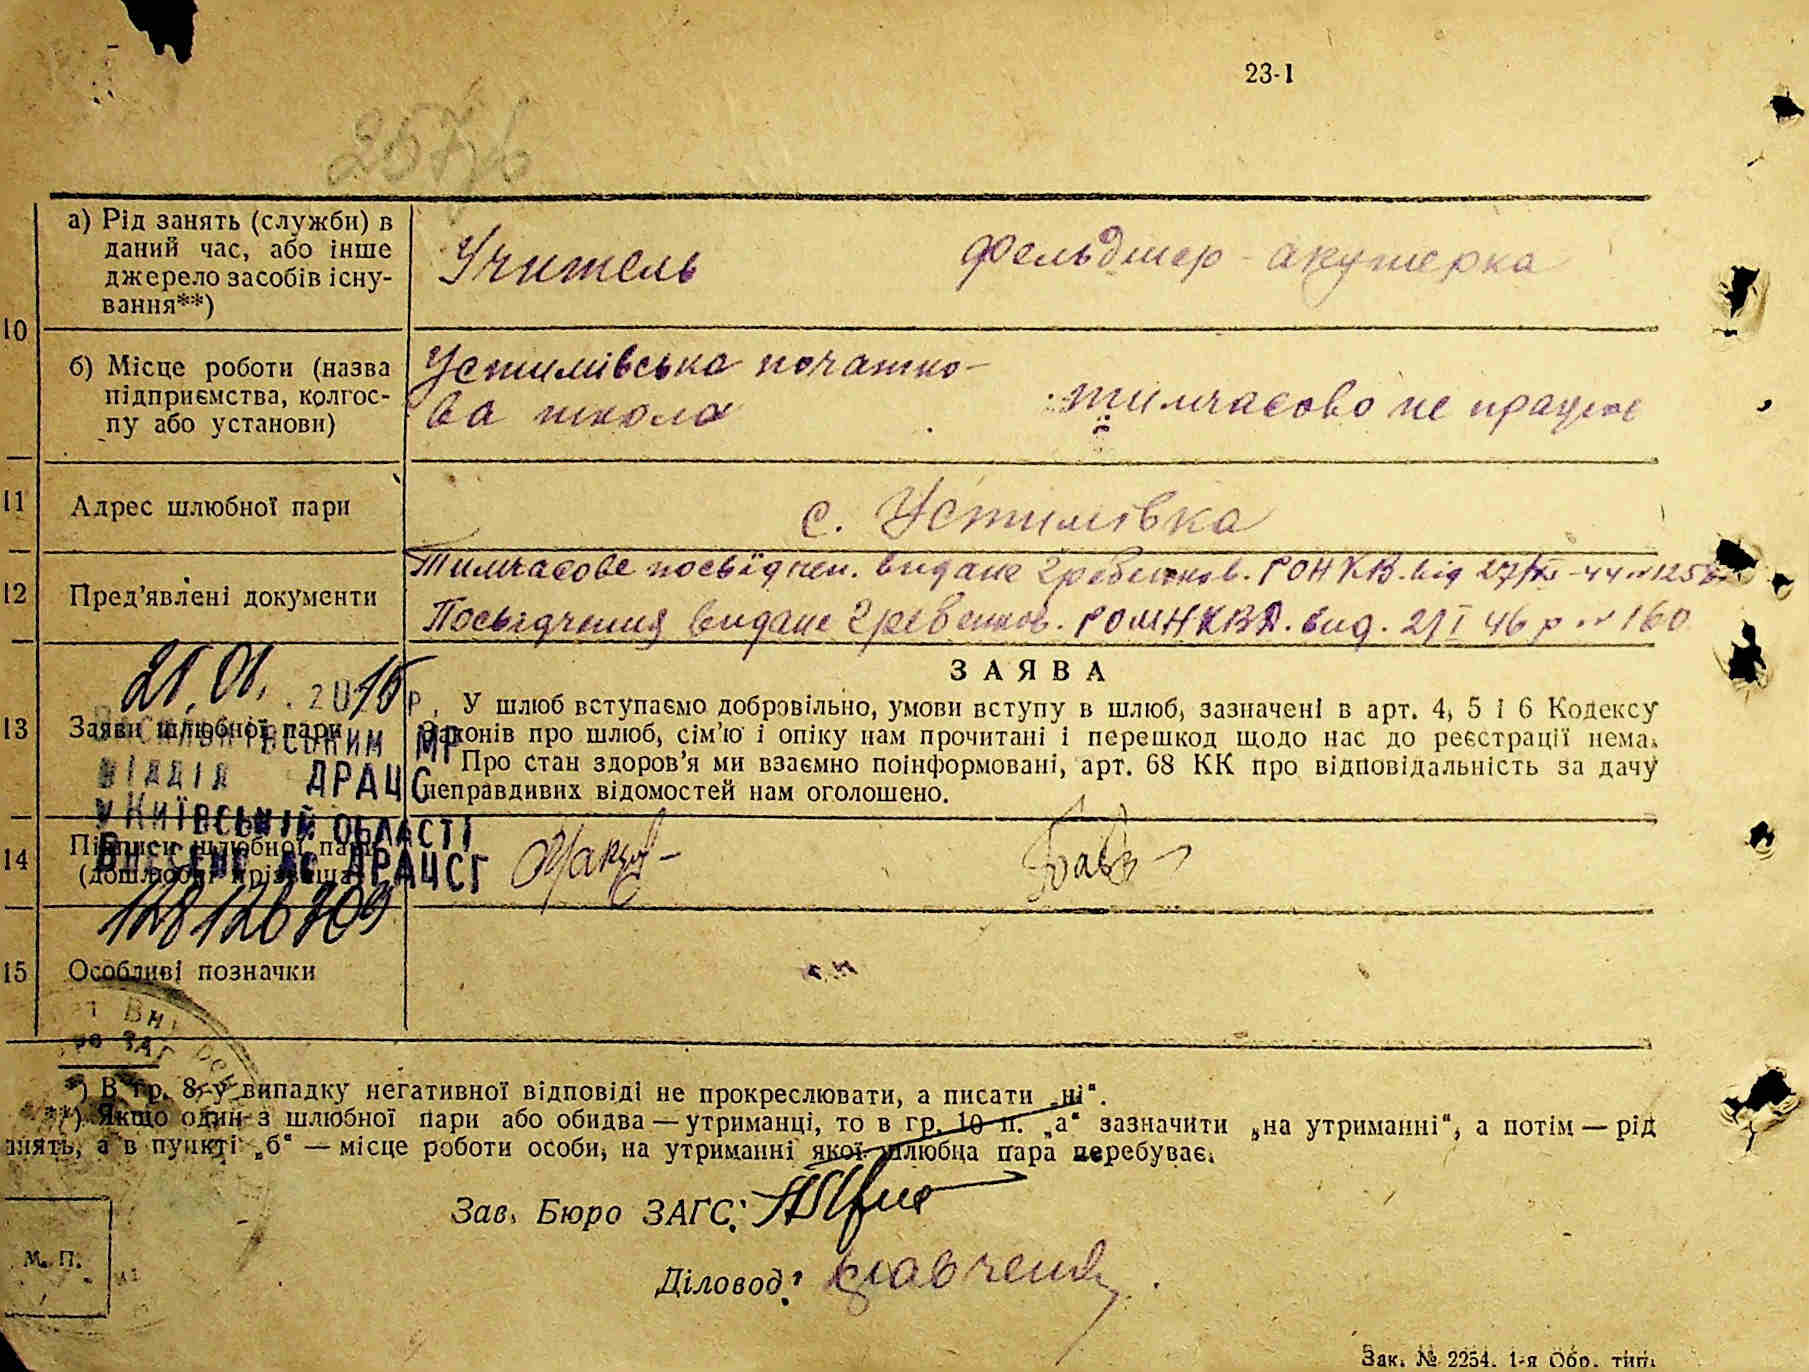 23-1
а) Рід занять (служби) в
даний час, або інше
джерело засобів існу-
вання**)
Учитель
фельдшер-акушерка
10
б) Місце роботи (назва
підприємства, колгос-
пу або установи)
Устимівська початко-
ва школа
тимчасово не працює
11
Адрес шлюбної пари
с. Устимівка
12
Пред'явлені документи
Тимчасове посвідчен. видане Гребенков. РОНКВ. від 27/XI-44
Посвідчення видане Гребенков. РОМНКВД. вид. 2/I 46 р № 160
13
Заяви шлюбної пари
ЗАЯВА
У шлюб вступаємо добровільно, умови вступу в шлюб, зазначені в арт. 4, 5 і 6 Кодексу
Законів про шлюб, сім'ю і опіку нам прочитані і перешкод щодо нас до реєстрації нема.
Про стан здоров'я ми взаємно поінформовані, арт. 68 КК про відповідальність за дачу
неправдивих відомостей нам оголошено.
21.01.2016р.
Васильківський МР
ВІДДІЛ ДРАЦС
у Київській області
Внесено до ДРАЦСГ
128126309
14
Підписи шлюбної пари
(дошлюбні прізвища)
15
Особливі позначки
*) В гр. 8 у випадку негативної відповіді не прокреслювати, а писати „ні“.
**) Якщо один з шлюбної пари або обидва — утриманці, то в гр. 10 п. „а“ зазначити „на утриманні“, а потім — рід
анять, а в пункті „б“ — місце роботи особи, на утриманні якої шлюбна пара перебуває.
Зав. Бюро ЗАГС:
Діловод:
М. П.
Зак. № 2254. 1-я Обр. тип.